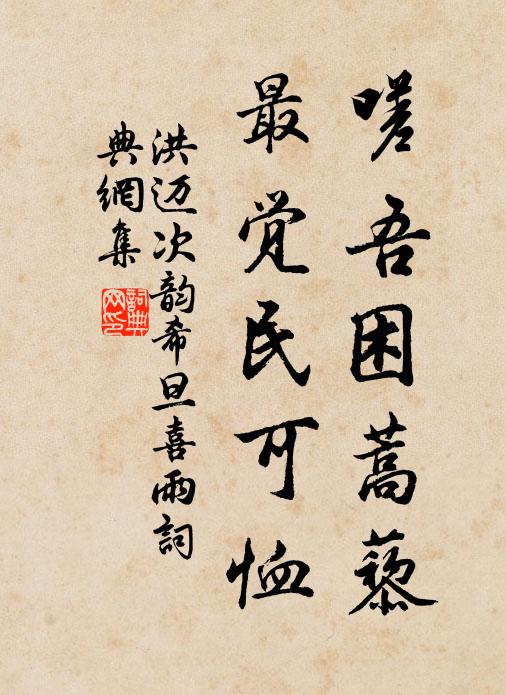 嗟吾困蒿藜
最觉民可恤
洪迈次韵希旦喜雨詞
典網集
詞典网印